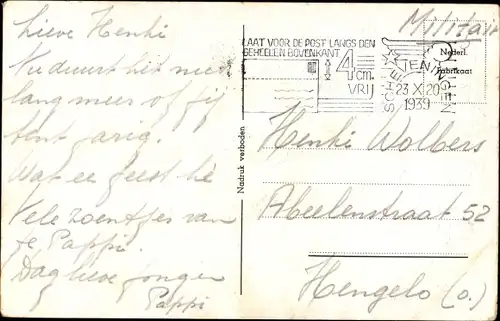 Lieve Henki
Nu duurt het niet
lang meer of jij
bent jarig.
Wat een feest hè
Vele zoentjes van
je Pappi.
Dag lieve jongen
Pappi
Nadruk verboden
LAAT VOOR DE POST LANGS DEN
GEHEELEN BOVENKANT
4 cm.
VRIJ
SCHEVENINGEN
23 X 20
1939
Militair
Nederl.
Fabrikaat
Henki Wolbers
Abeelenstraat 52
Hengelo (O.)